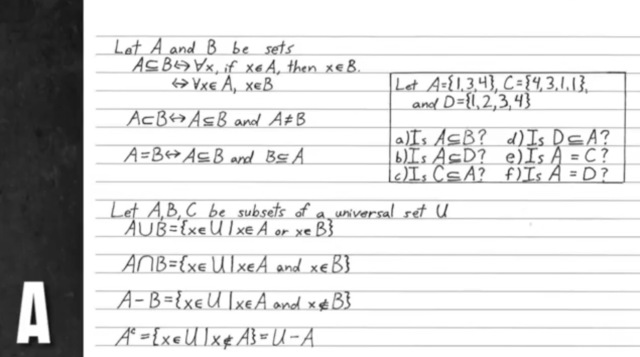 Let A and B be sets
A⊆B⇔∀x, if x∈A, then x∈B.
⇔∀x∈A, x∈B
A⊂B⇔A⊆B and A≠B
A=B⇔A⊆B and B⊆A
Let A={1,3,4}, C={4,3,1,1},
and D={1,2,3,4}
a) Is A⊆B? d) Is D⊆A?
b) Is A⊆D? e) Is A = C?
c) Is C⊆A? f) Is A = D?
Let A,B,C be subsets of a universal set U
A∪B={x∈U|x∈A or x∈B}
A∩B={x∈U|x∈A and x∈B}
A-B={x∈U|x∈A and x∉B}
Aᶜ={x∈U|x∉A}=U-A
A